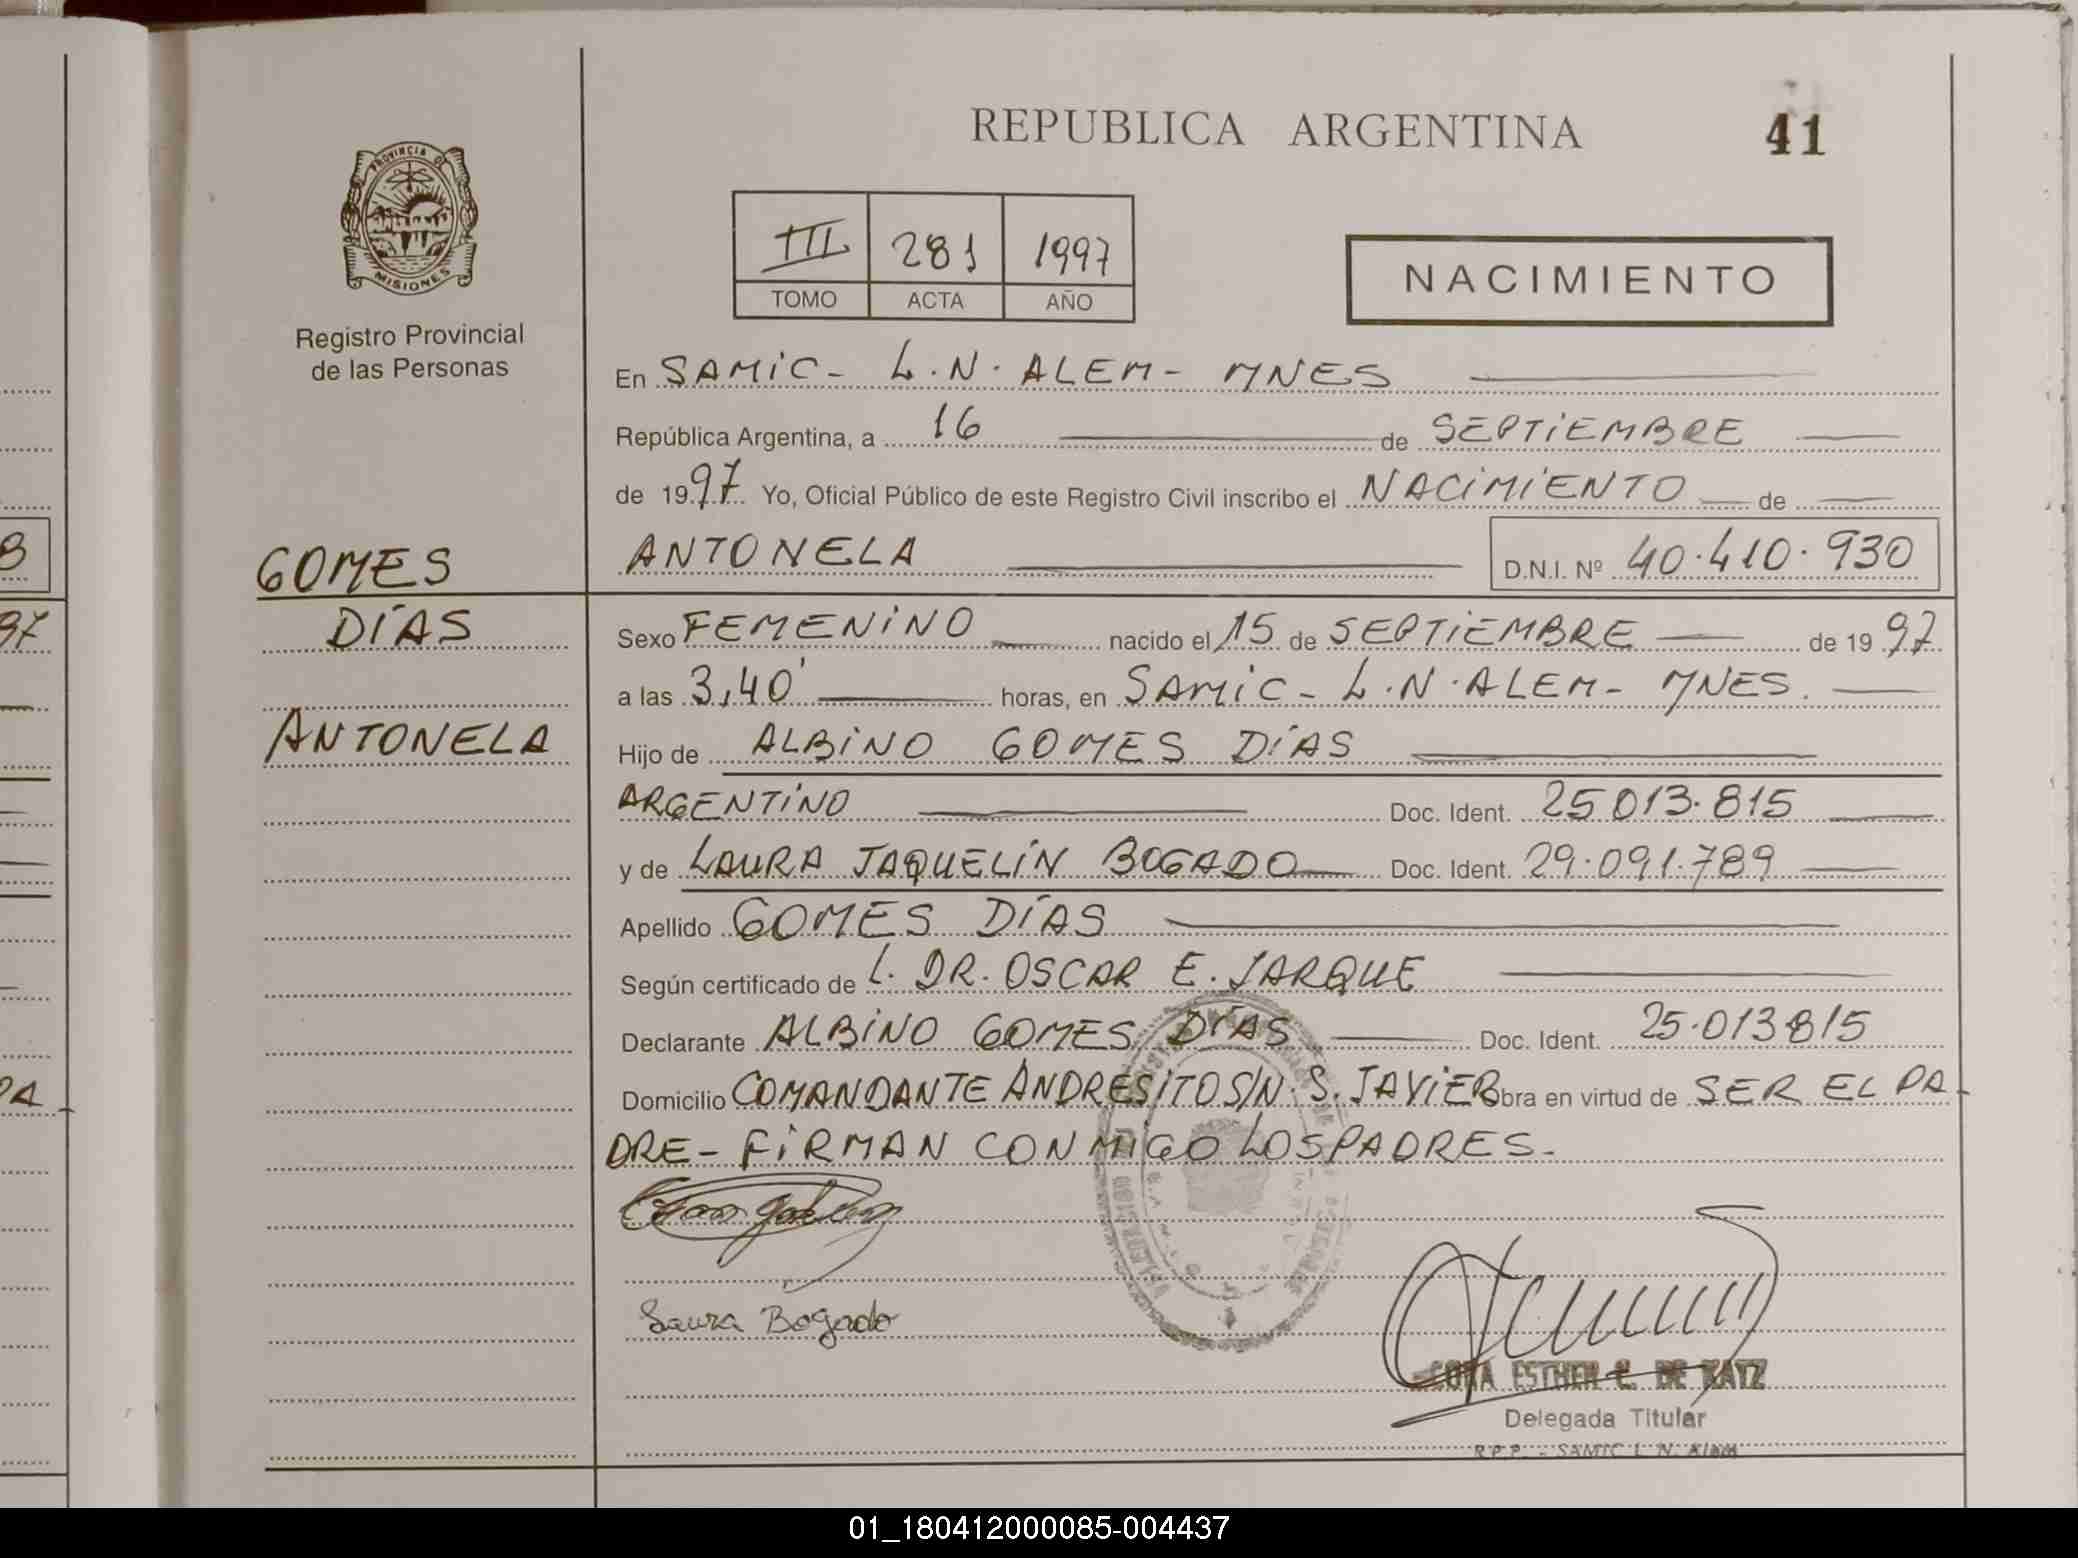 REPUBLICA ARGENTINA
41
PROVINCIA DE
MISIONES
Registro Provincial
de las Personas
III 281 1997
TOMO ACTA AÑO
NACIMIENTO
En SAMIC - L.N. ALEM - MNES
República Argentina, a 16 de SEPTIEMBRE
de 1997 Yo, Oficial Público de este Registro Civil inscribo el NACIMIENTO de
GOMES
ANTONELA D.N.I. Nº 40.410.930
DÍAS
Sexo FEMENINO nacido el 15 de SEPTIEMBRE de 1997
a las 3,40' horas, en SAMIC - L.N. ALEM - MNES.
ANTONELA
Hijo de ALBINO GOMES DÍAS
ARGENTINO Doc. Ident. 25.013.815
y de LAURA JAQUELIN BOGADO Doc. Ident. 29.091.789
Apellido GOMES DÍAS
Según certificado de L. DR. OSCAR E. JARQUE
Declarante ALBINO GOMES DÍAS Doc. Ident. 25.013.815
Domicilio COMANDANTE ANDRESITO S/N. S. JAVIER bra en virtud de SER EL PA-
DRE - FIRMAN CONMIGO LOS PADRES.
Laura Bogado
ESTHER DE KATZ
Delegada Titular
R.P.P. - SAMIC L. N. Alem
B
97
PA
01_180412000085-004437